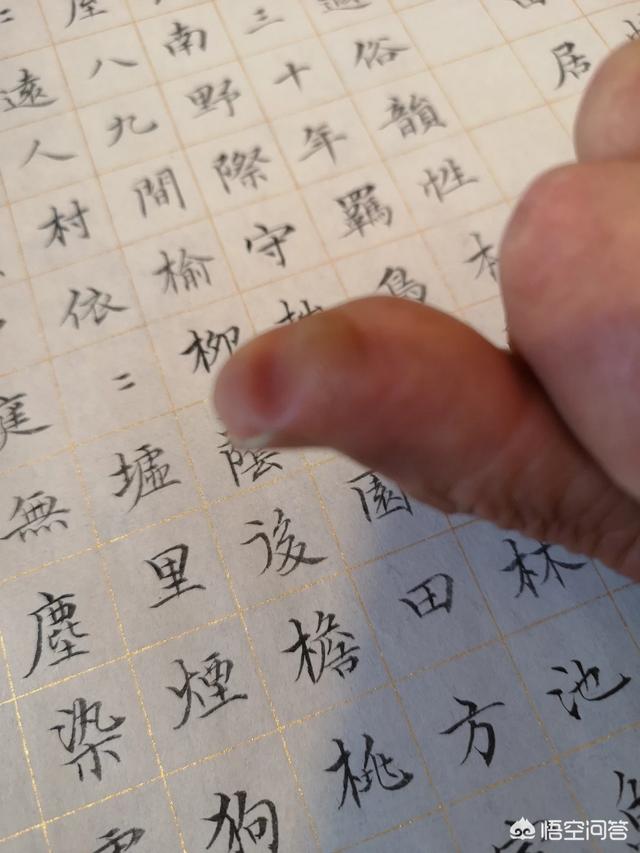 居
俗韻性
三十年羈鳥林池
南野際守園田方
屋八九間榆柳蔭後檐桃
遠人村依二墟里煙狗
庭無塵染
悟空问答